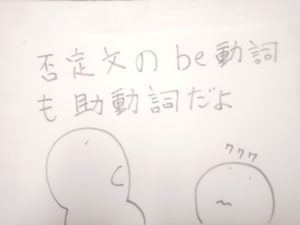 否定文のbe動詞
も助動詞だよ
ククク